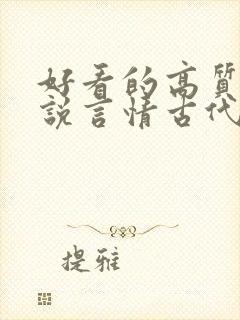 好看的高质
说言情古代
提雅